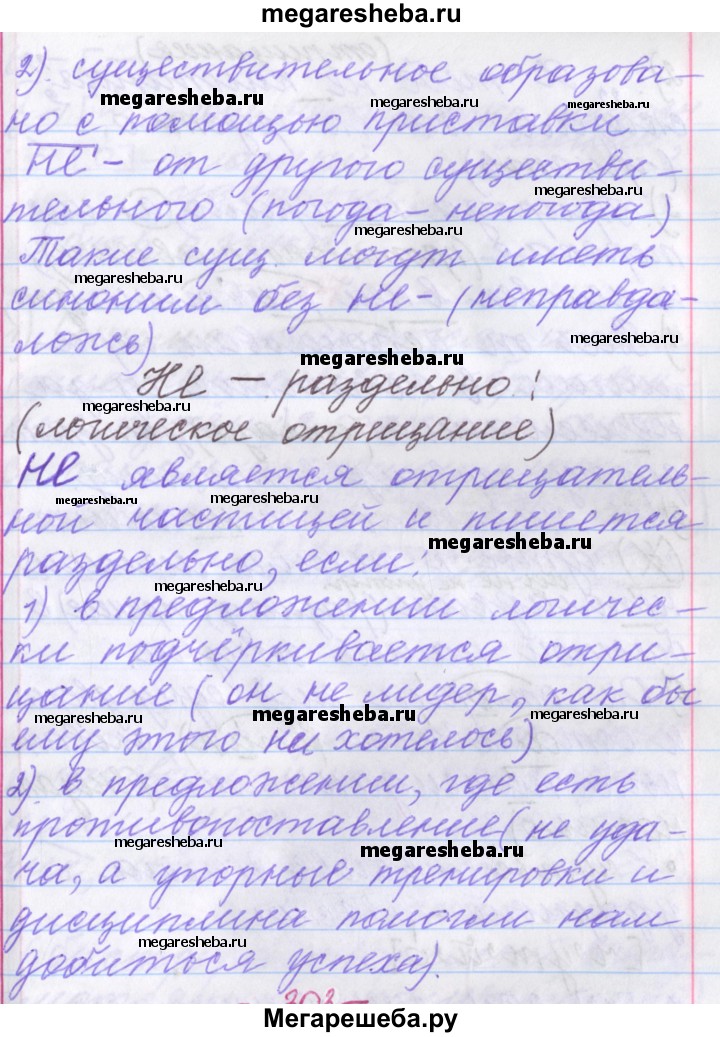 megaresheba.ru
2) существительное образова-
megaresheba.ru megaresheba.ru megaresheba.ru
но с помощью приставки
не - от другого существи-
megaresheba.ru
тельного (погода - непогода)
megaresheba.ru
Такие сущ. могут иметь
megaresheba.ru
синоним без не - (неправда-
megaresheba.ru
ложь)
megaresheba.ru
Не - раздельно!
megaresheba.ru
(логическое отрицание)
Не является отрицатель-
megaresheba.ru megaresheba.ru
ной частицей и пишется
megaresheba.ru
раздельно, если:
megaresheba.ru
1) в предложении логичес-
ки подчёркивается отри-
цание (он не лидер, как бы
megaresheba.ru megaresheba.ru megaresheba.ru
ему этого не хотелось)
2) в предложении, где есть
противопоставление (не уда-
megaresheba.ru megaresheba.ru
ча, а упорные тренировки и
дисциплина помогли нам
megaresheba.ru
добиться успеха).
303
Мегарешеба.ру